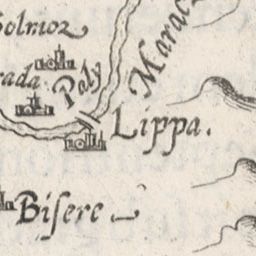 Solnoz
rada
Poly
Marac
Lippa.
Bisere